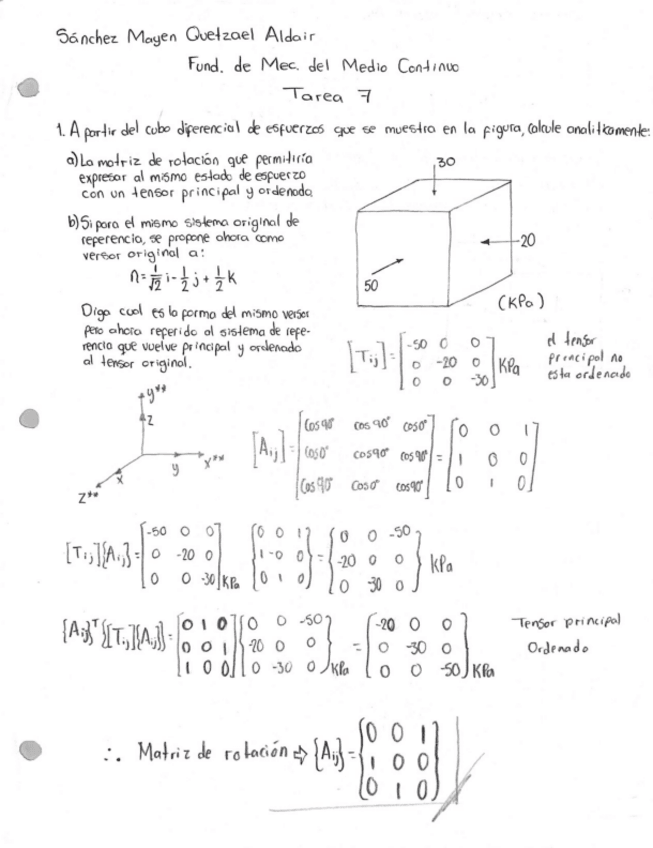 Sánchez Mayen Quetzael Aldair
Fund. de Mec. del Medio Continuo
Tarea 7
1. A partir del cubo diferencial de esfuerzos que se muestra en la figura, calcule analíticamente:
a) La matriz de rotación que permitiría
expresar al mismo estado de esfuerzo
con un tensor principal y ordenado
30
20
50
(KPa)
b) Si para el mismo sistema original de
referencia, se propone ahora como
versor original a:
n = 1/√2 i - 1/2 j + 1/2 k
Diga cual es la forma del mismo versor
pero ahora referido al sistema de refe-
rencia que vuelve principal y ordenado
al tensor original.
[Tij] = [-50 0 0
0 -20 0
0 0 -30] KPa
el tensor
principal no
esta ordenado
y**
z
y
x**
x
z**
[Aij] = [cos90° cos90° cos0°
cos0° cos90° cos90°
cos90° cos0° cos90°] = [0 0 1
1 0 0
0 1 0]
[Tij]{Aij} = [-50 0 0
0 -20 0
0 0 -30] KPa {0 0 1
1 0 0
0 1 0} = {0 0 -50
-20 0 0
0 -30 0} KPa
{Aij}ᵀ{[Tij]{Aij}} = [0 1 0
0 0 1
1 0 0] {0 0 -50
-20 0 0
0 -30 0} KPa = {-20 0 0
0 -30 0
0 0 -50} KPa
Tensor principal
Ordenado
∴ Matriz de rotación ⇒ {Aij} = {0 0 1
1 0 0
0 1 0}